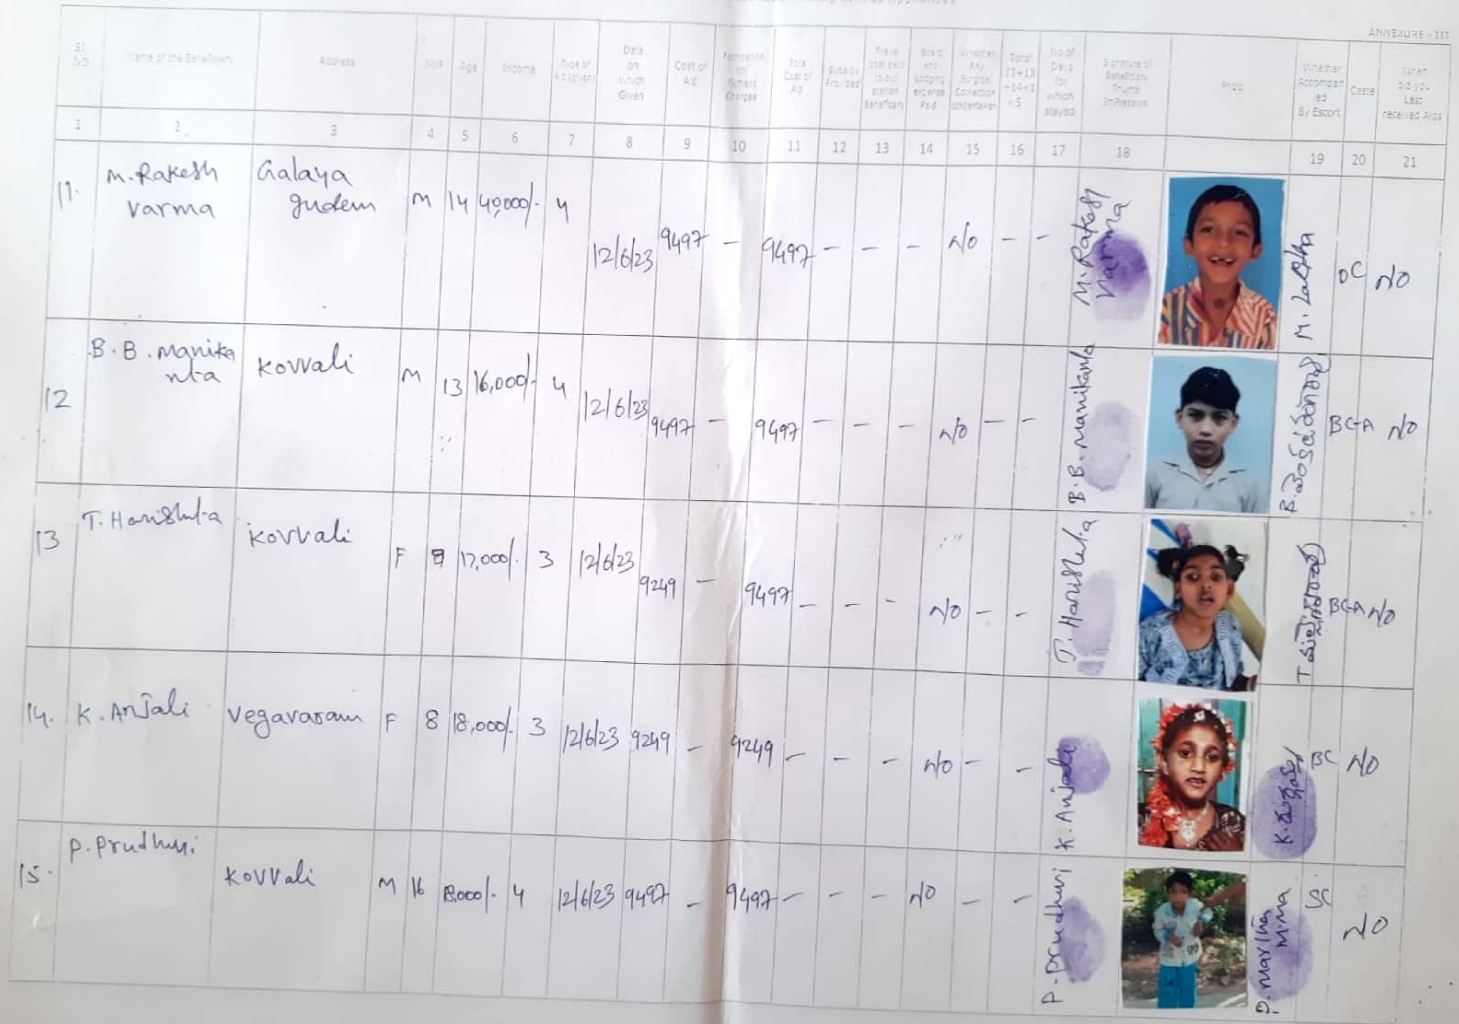 ANNEXURE - III
Sl. No. Name of the Beneficiary Address M/F Age Income Type of Aid (given) Date on Which Given Cost of Aid Fabrication Charges Total Cost of Aid Subsidy Provided Board and Lodging expense Paid Whether Any Surgical Correction Undertaken Total 11+13+14+15 No of Days for which stayed Signature of Beneficiary Thumb Impression Photo Whether Accompanied By Escort Caste Last received Aids
1 2 3 4 5 6 7 8 9 10 11 12 13 14 15 16 17 18 19 20 21
11. M. Rakesh Varma Galaya gudem M 14 40,000/- 4 12/6/23 9497 - 9497 - - - No - - M. Rakesh Varma M. Latha OC No
12 B. B. Manikanta Kovvali M 13 16,000/- 4 12/6/23 9497 - 9497 - - - No - - B. B. Manikanta BC-A No
13 T. Harishita Kovvali F 17,000/- 3 12/6/23 9249 - 9497 - - - No - - T. Harishita BC-A No
14. K. Anjali Vegavaram F 8 18,000/- 3 12/6/23 9249 - 9249 - - - No - - K. Anjali BC No
15. P. Prudhuvi Kovvali M 16 18,000/- 4 12/6/23 9497 - 9497 - - - No - - P. Prudhuvi P. Martha SC No